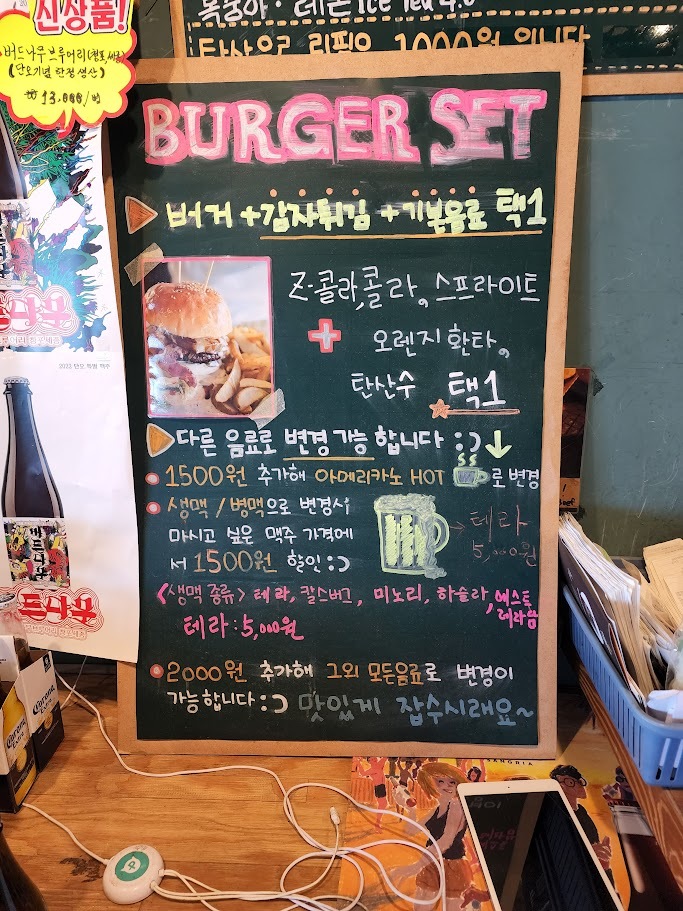 신상품!
버드나무브루어리(창포
(단오기념 한정생산)
₩13,000/병
복숭아 · 레몬 Ice Tea
탄산음료 리필은 1000원 입니다
BURGER SET
버거 + 감자튀김 + 기본음료 택1
Z-콜라, 콜라, 스프라이트
+ 오렌지 환타,
탄산수 택1
다른 음료로 변경가능 합니다 :)
1500원 추가해 아메리카노 HOT 로 변경
생맥 / 병맥으로 변경시
마시고 싶은 맥주 가격에
서 1500원 할인 :)
→ 테라
5,000원
<생맥 종류> 테라, 칼스버그, 미노리, 하슬라, 에스트레라담
테라 : 5,000원
2000원 추가해 그외 모든음료로 변경이
가능합니다 :) 맛있게 잡수시래요~
드나무
2022 단오 특별 맥주
버드나무
드나무
Corona
Extra
Corona
Extra
SANGRIA